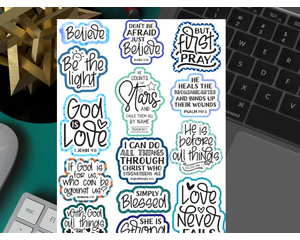 Believe
Be the
light
God
is
Love
1 JOHN 4:8
If God is
for us, who
can be
against us?
With God
all things
DON'T BE
AFRAID
JUST
Believe
MARK 5:36
HE
COUNTS
the
Stars
AND
CALLS THEM ALL
BY NAME
PSALM 147:4
I CAN DO
ALL THINGS
THROUGH
CHRIST WHO
STRENGTHENS ME
PHILIPPIANS 4:13
SIMPLY
Blessed
SHE IS
strong
BUT
First
PRAY
HE
HEALS THE
BROKENHEARTED
AND BINDS UP
THEIR WOUNDS
PSALM 147:3
He is
before
all things
Love
Never
FAILS